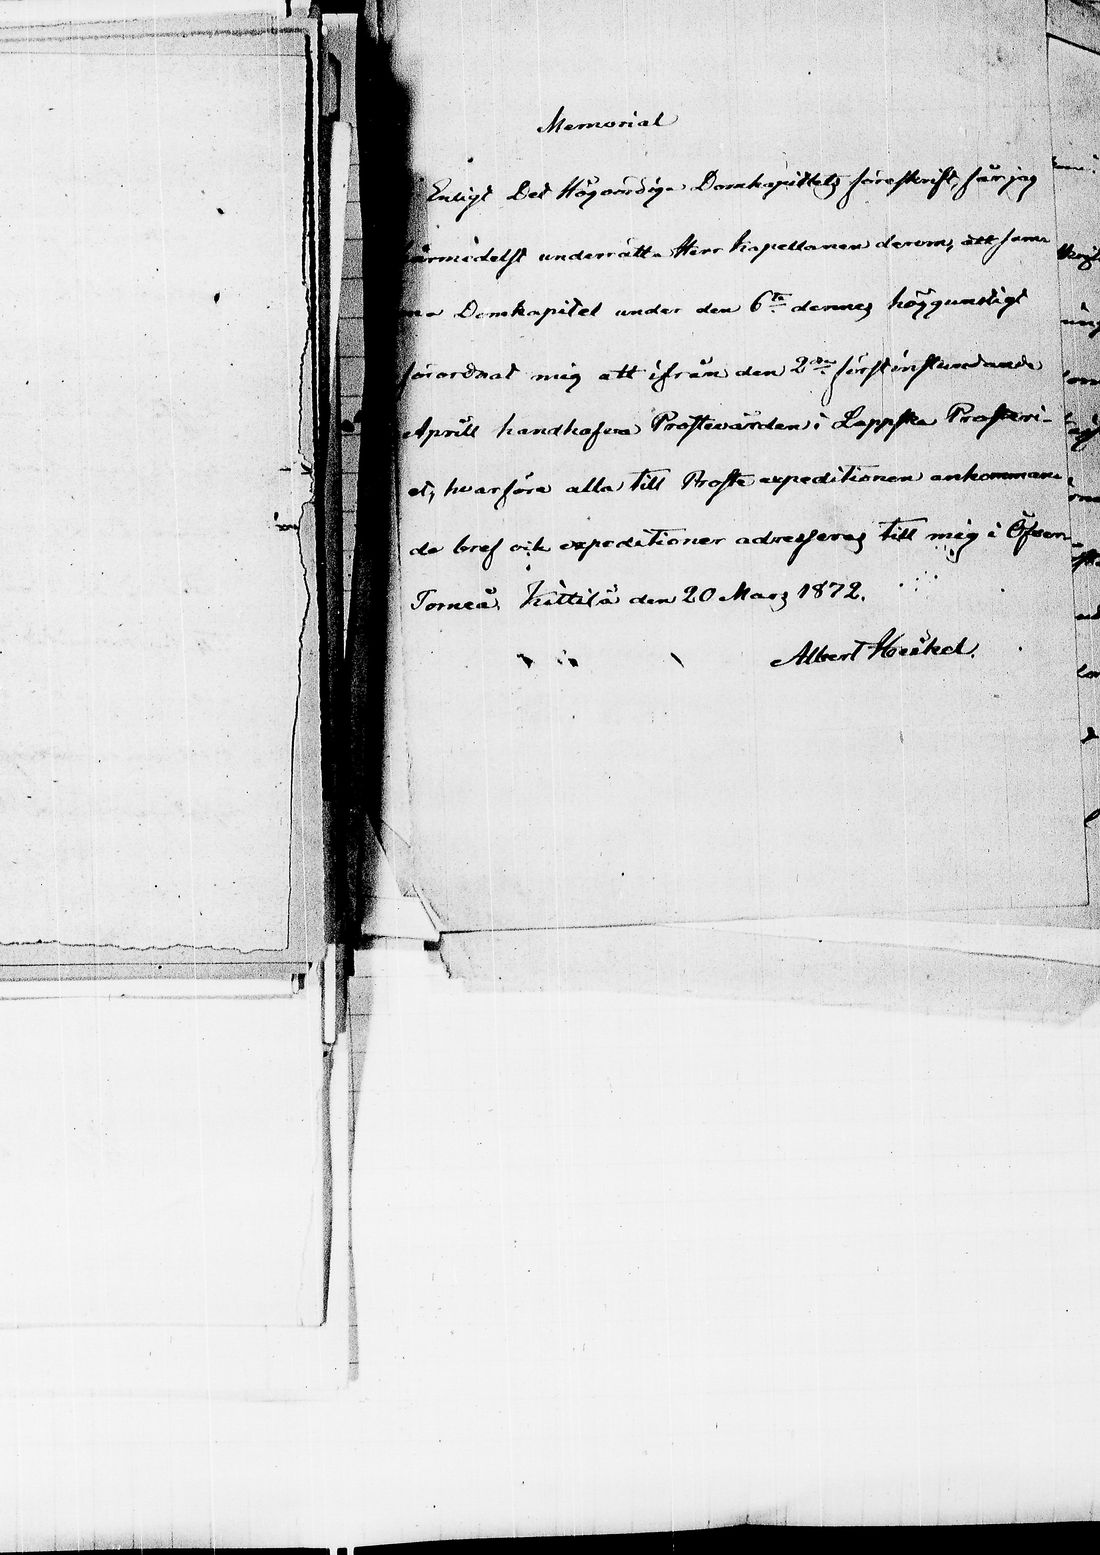 Memorial
Enligt Det Högvördiga Domkapitlets föreskrift, får jag
härmedelst underrätta Herr Kapellanen derom, att sam-
ma Domkapitel under den 6te dennes höggunstigt
förordnat mig att ifrån den 2dra förstinstundande
Aprill handhafva Prostevården i Lappska Prosteri-
et, hvarföre alla till Proste expeditionen ankomman-
de bref och expeditioner adresseras till mig i Öfver
Torneå. Kittilä den 20 Mars 1872.
Albert